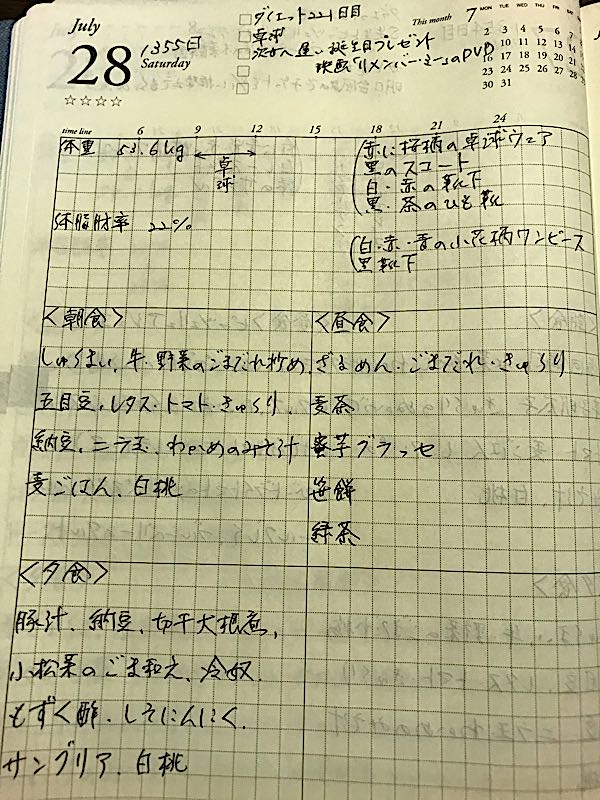 July
28
1355日
Saturday
☆☆☆☆
□ダイエット221日目
□卓球
□次女へ遅い誕生日プレゼント
□映画「リメンバー・ミー」のDVD
□
This month 7
MON TUE WED THU FRI SAT
2 3 4 5 6 7
9 10 11 12 13 14
16 17 18 19 20 21
23 24 25 26 27 28
30 31
time line 6 9 12 15 18 21 24
体重 53.6kg
卓球
赤に桜柄の卓球ウェア
黒のスコート
白・赤の靴下
黒・茶のひも靴
体脂肪率 22%
白・赤・青の小花柄ワンピース
黒靴下
<朝食>
しゅうまい、牛・野菜のごまだれ炒め、
五目豆、レタス・トマト・きゅうり、
納豆、ニラ玉、わかめのみそ汁
麦ごはん、白桃
<昼食>
ざるめん・ごまだれ・きゅうり
麦茶
蜜芋グラッセ
笹餅
緑茶
<夕食>
豚汁、納豆、切干大根煮、
小松菜のごま和え、冷奴、
もずく酢、しそにんにく、
サングリア、白桃